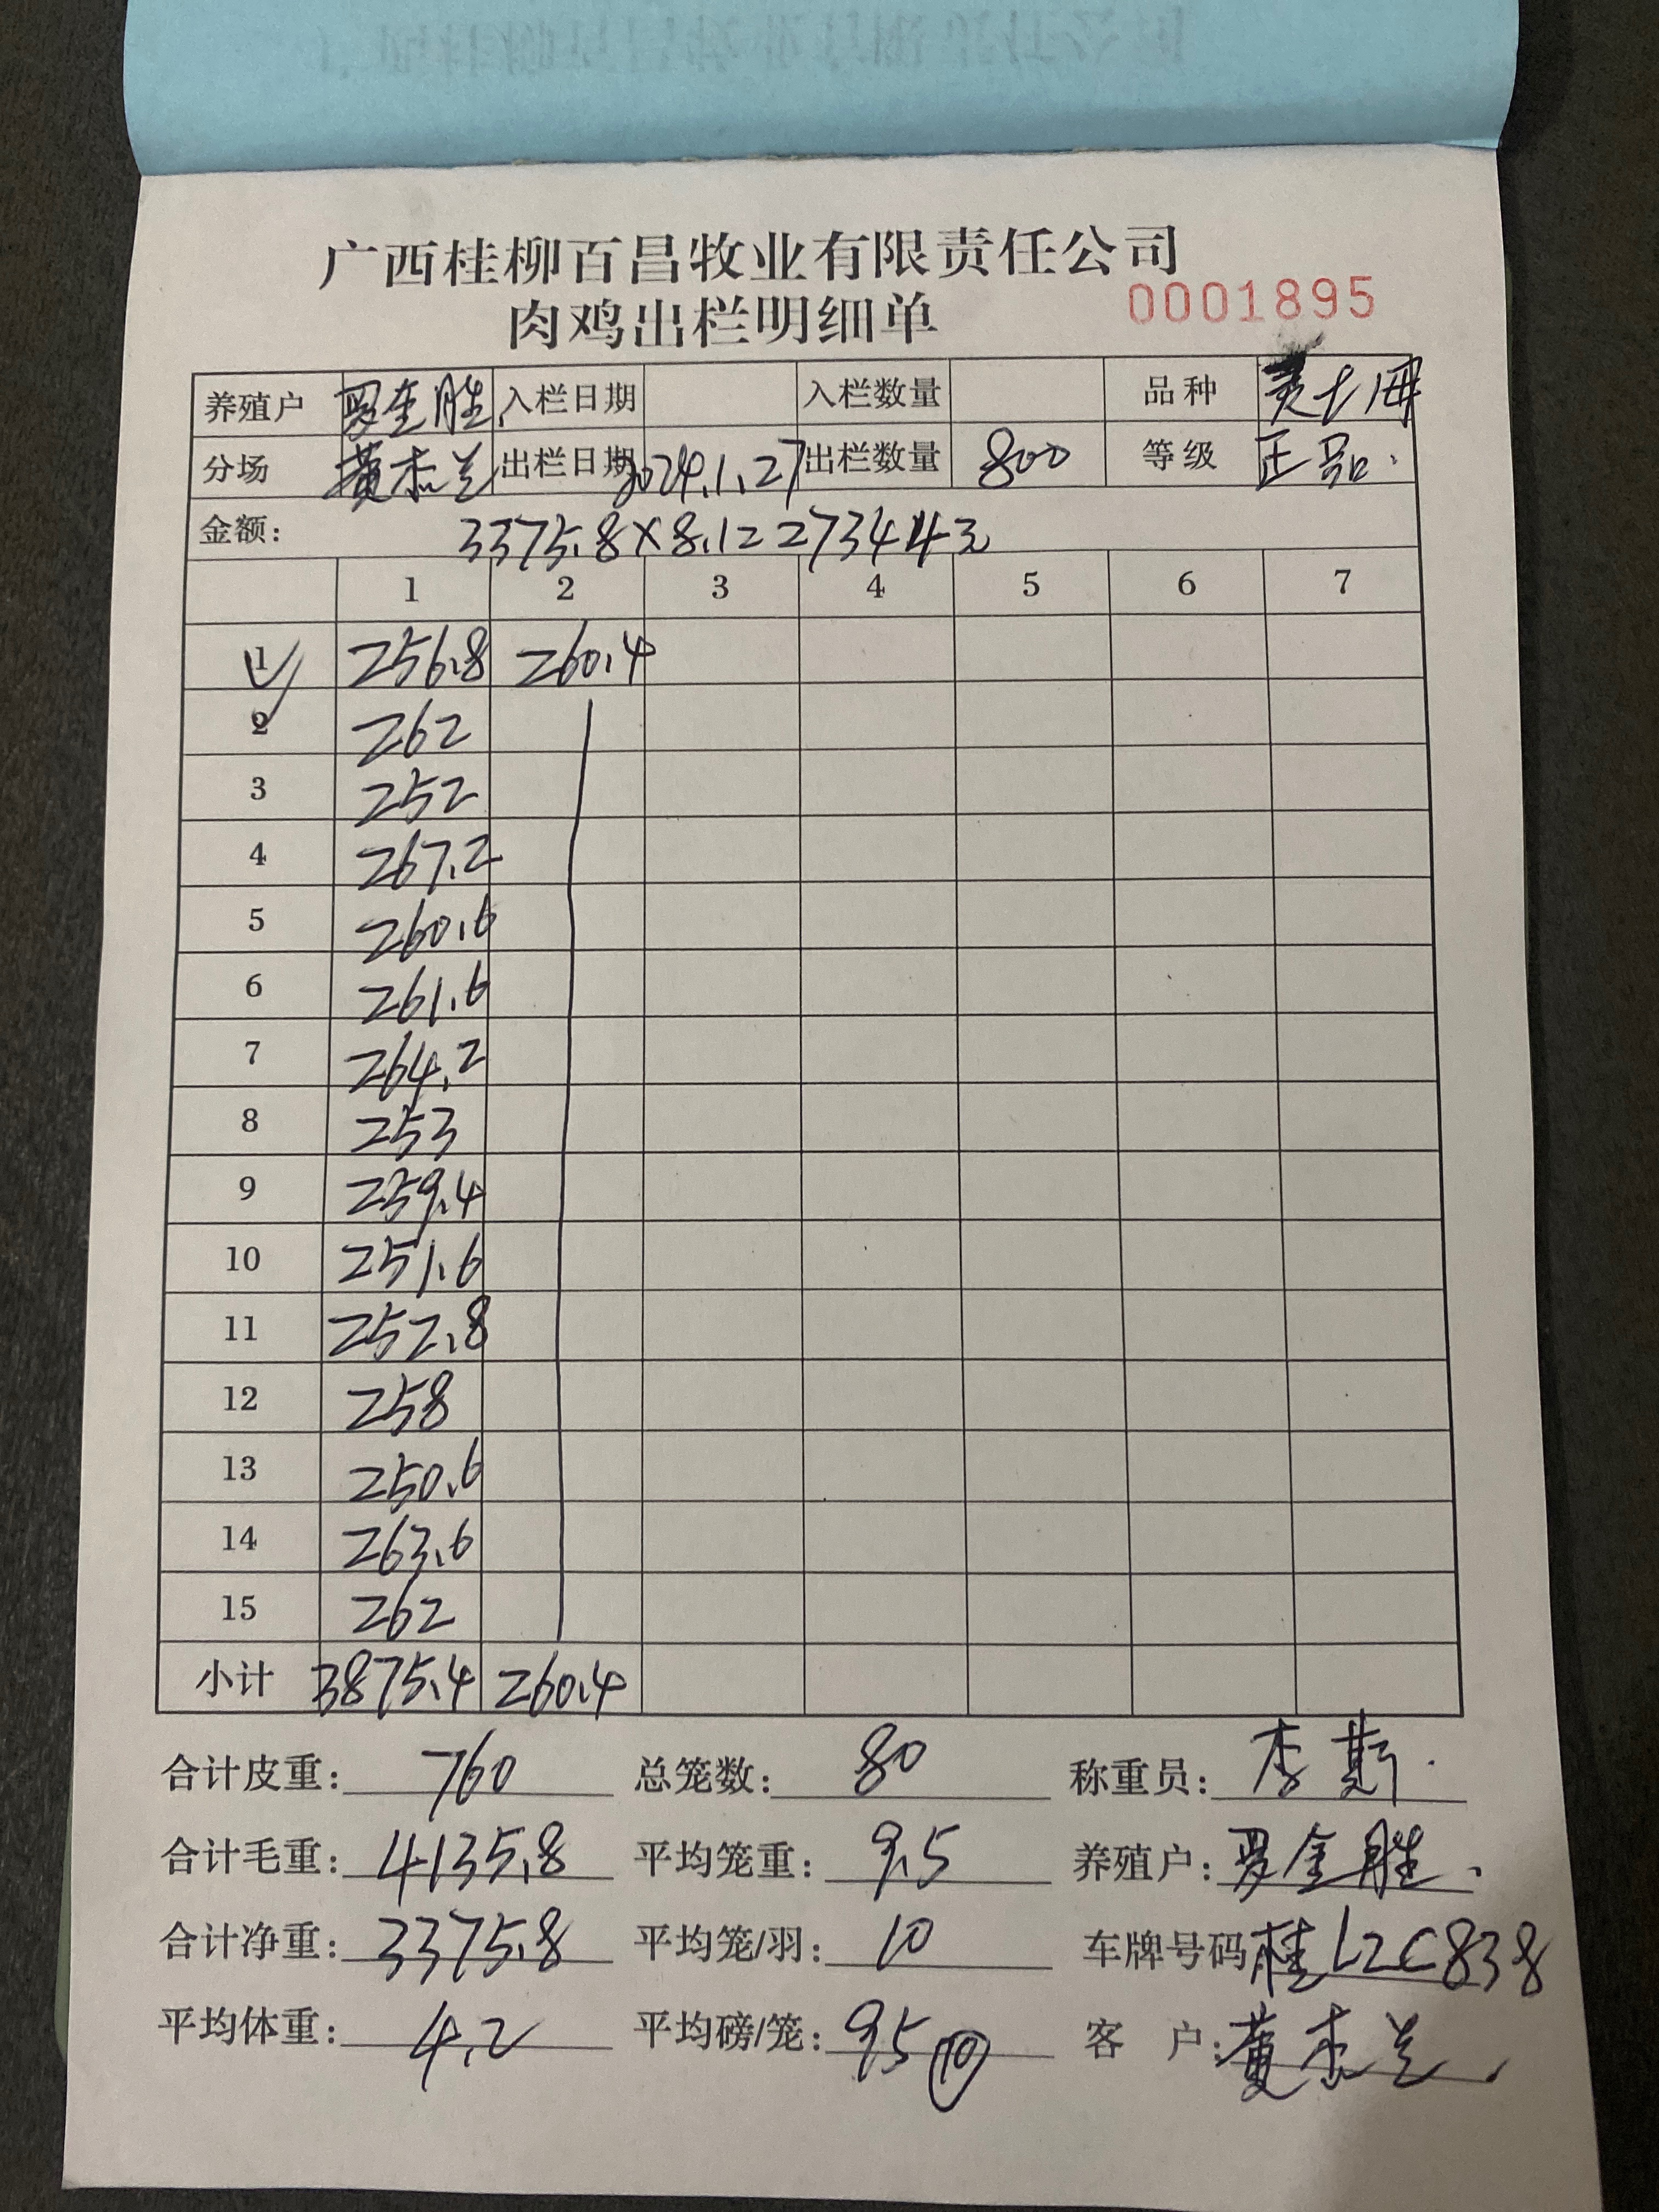 广西桂柳百昌牧业有限责任公司
肉鸡出栏明细单 0001895
养殖户 罗金胜 入栏日期 入栏数量 品种
分场 黄杰兰 出栏日期 2024.1.27 出栏数量 800 等级 正品.
金额: 3375.8×8.1=27344元
1 2 3 4 5 6 7
1 256.8 260.4
2 262
3 252
4 267.2
5 260.6
6 261.6
7 264.2
8 253
9 259.4
10 251.6
11 252.8
12 258
13 250.6
14 263.6
15 262
小计 3875.4 260.4
合计皮重: 760 总笼数: 80 称重员: 李斯.
合计毛重: 4135.8 平均笼重: 9.5 养殖户: 罗金胜.
合计净重: 3375.8 平均笼/羽: 10 车牌号码: 桂L2C838
平均体重: 4.2 平均磅/笼: 95 10 客户: 黄杰兰.